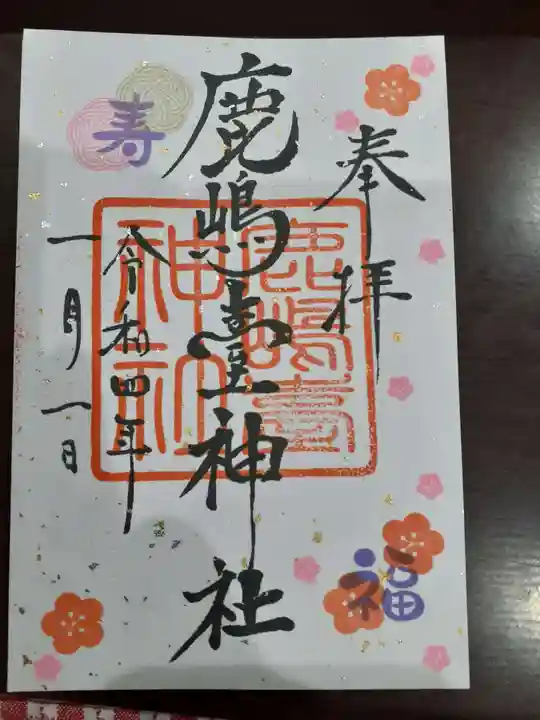 奉拝
鹿嶋臺神社
鹿嶋臺神社
令和四年
一月一日
寿
福